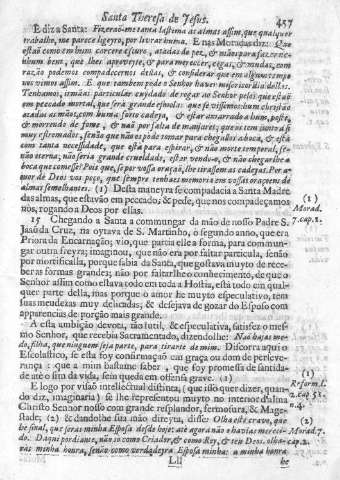 Santa Theresa de Jesus. 457
E diz a Santa: Fizeraõ-me tanta lastima as almas assim, que qualquer
trabalho, me parece ligeyro, por livrar huma. E nas Moradas diz: Que
estaõ como em hum carcere escuro, atadas de pez, & mãos para fazer ne-
nhum bem, que lhes aproveyte, & para merecer, cegas, & mudas, com
razaõ podemos compadecernos dellas, & considerar que em algum tempo
nos vimos assim. E que tambem póde o Senhor haver misericordia dellas.
Tenhamos, irmãas, particular cuydado de rogar ao Senhor pelas que estaõ
em peccado mortal, que será grande esmola: que se vissemos hum christaõ
atadas as mãos, com huma forte cadeya, & estar amarrado a hum poste,
& morrendo de fome, & naõ por falta de manjares; que os tem junto a si
muy estremados, senaõ que naõ os póde tomar para chegallos à boca, & está
com tanta necessidade, que está para espirar, & naõ morte temporal, se-
naõ eterna; naõ seria grande crueldade, estar vendo-o, & naõ chegarlhe à
boca que comesse? Pois que, se por vossa oraçaõ, lhe tirassem as cadeyas. Por a-
mor de Deos vos peço, que sempre tenhaes memoria em vossas oraçoens de
almas semelhantes. (1) Desta maneyra se compadecia a Santa Madre
das almas, que estavaõ em peccado; & pede, que nos compadeçamos
nós, rogando a Deos por ellas.
(1)
Morad.
7. cap. 2.
15 Chegando a Santa a commungar da mão de nosso Padre S.
Joaõ da Cruz, na oytava de S. Martinho, o segundo anno, que era
Priora da Encarnaçaõ; vio, que partia elle a fórma, para commun-
gar outra freyra; imaginou, que naõ era por faltar particula, senaõ
por mortificalla, porque sabia da Santa, que gostava muyto de rece-
ber as formas grandes; naõ por faltarlhe o conhecimento, de que o
Senhor assim como estava todo em toda a Hostia, está todo em qual-
quer parte della, mas porque o amor he muyto especulativo, tem
suas meudezas muy delicadas; & desejava de gozar do Esposo com
apparencias de porçaõ mais grande.
A esta ambiçaõ devota, taõ sutil, & especulativa, satisfez o mes-
mo Senhor, que recebia Sacramentado, dizendolhe: Naõ hajas me-
do, filha, que ninguem seja parte, para tirarte de mim. Discorra aqui o
Escolastico, se esta foy confirmaçaõ em graça ou dom de perseve-
rança: que a mim bastame saber, que foy promessa de santida-
de até o fim da vida, sem queda em offensa grave. (1)
(1)
Reform. l.
2. cap. 52.
n. 4.
E logo por visaõ intellectual distinta, (que isso quer dizer, quan-
do diz, imaginaria) se lhe representou muyto no interior d'alma
Christo Senhor nosso com grande resplandor, fermosura, & Mage-
stade; (2) & dandolhe sua mão direyta, disse: Olha este cravo, que
he sinal, que serás minha Esposa desde hoje: até agora naõ o havias mereci-
do. Daqui por diante, naõ só como Criador, & como Rey, & teu Deos, olha-
rás minha honra, senaõ como verdadeyra Esposa minha: a minha honra
(2)
Morad. 7.
cap. 2.
Lll he